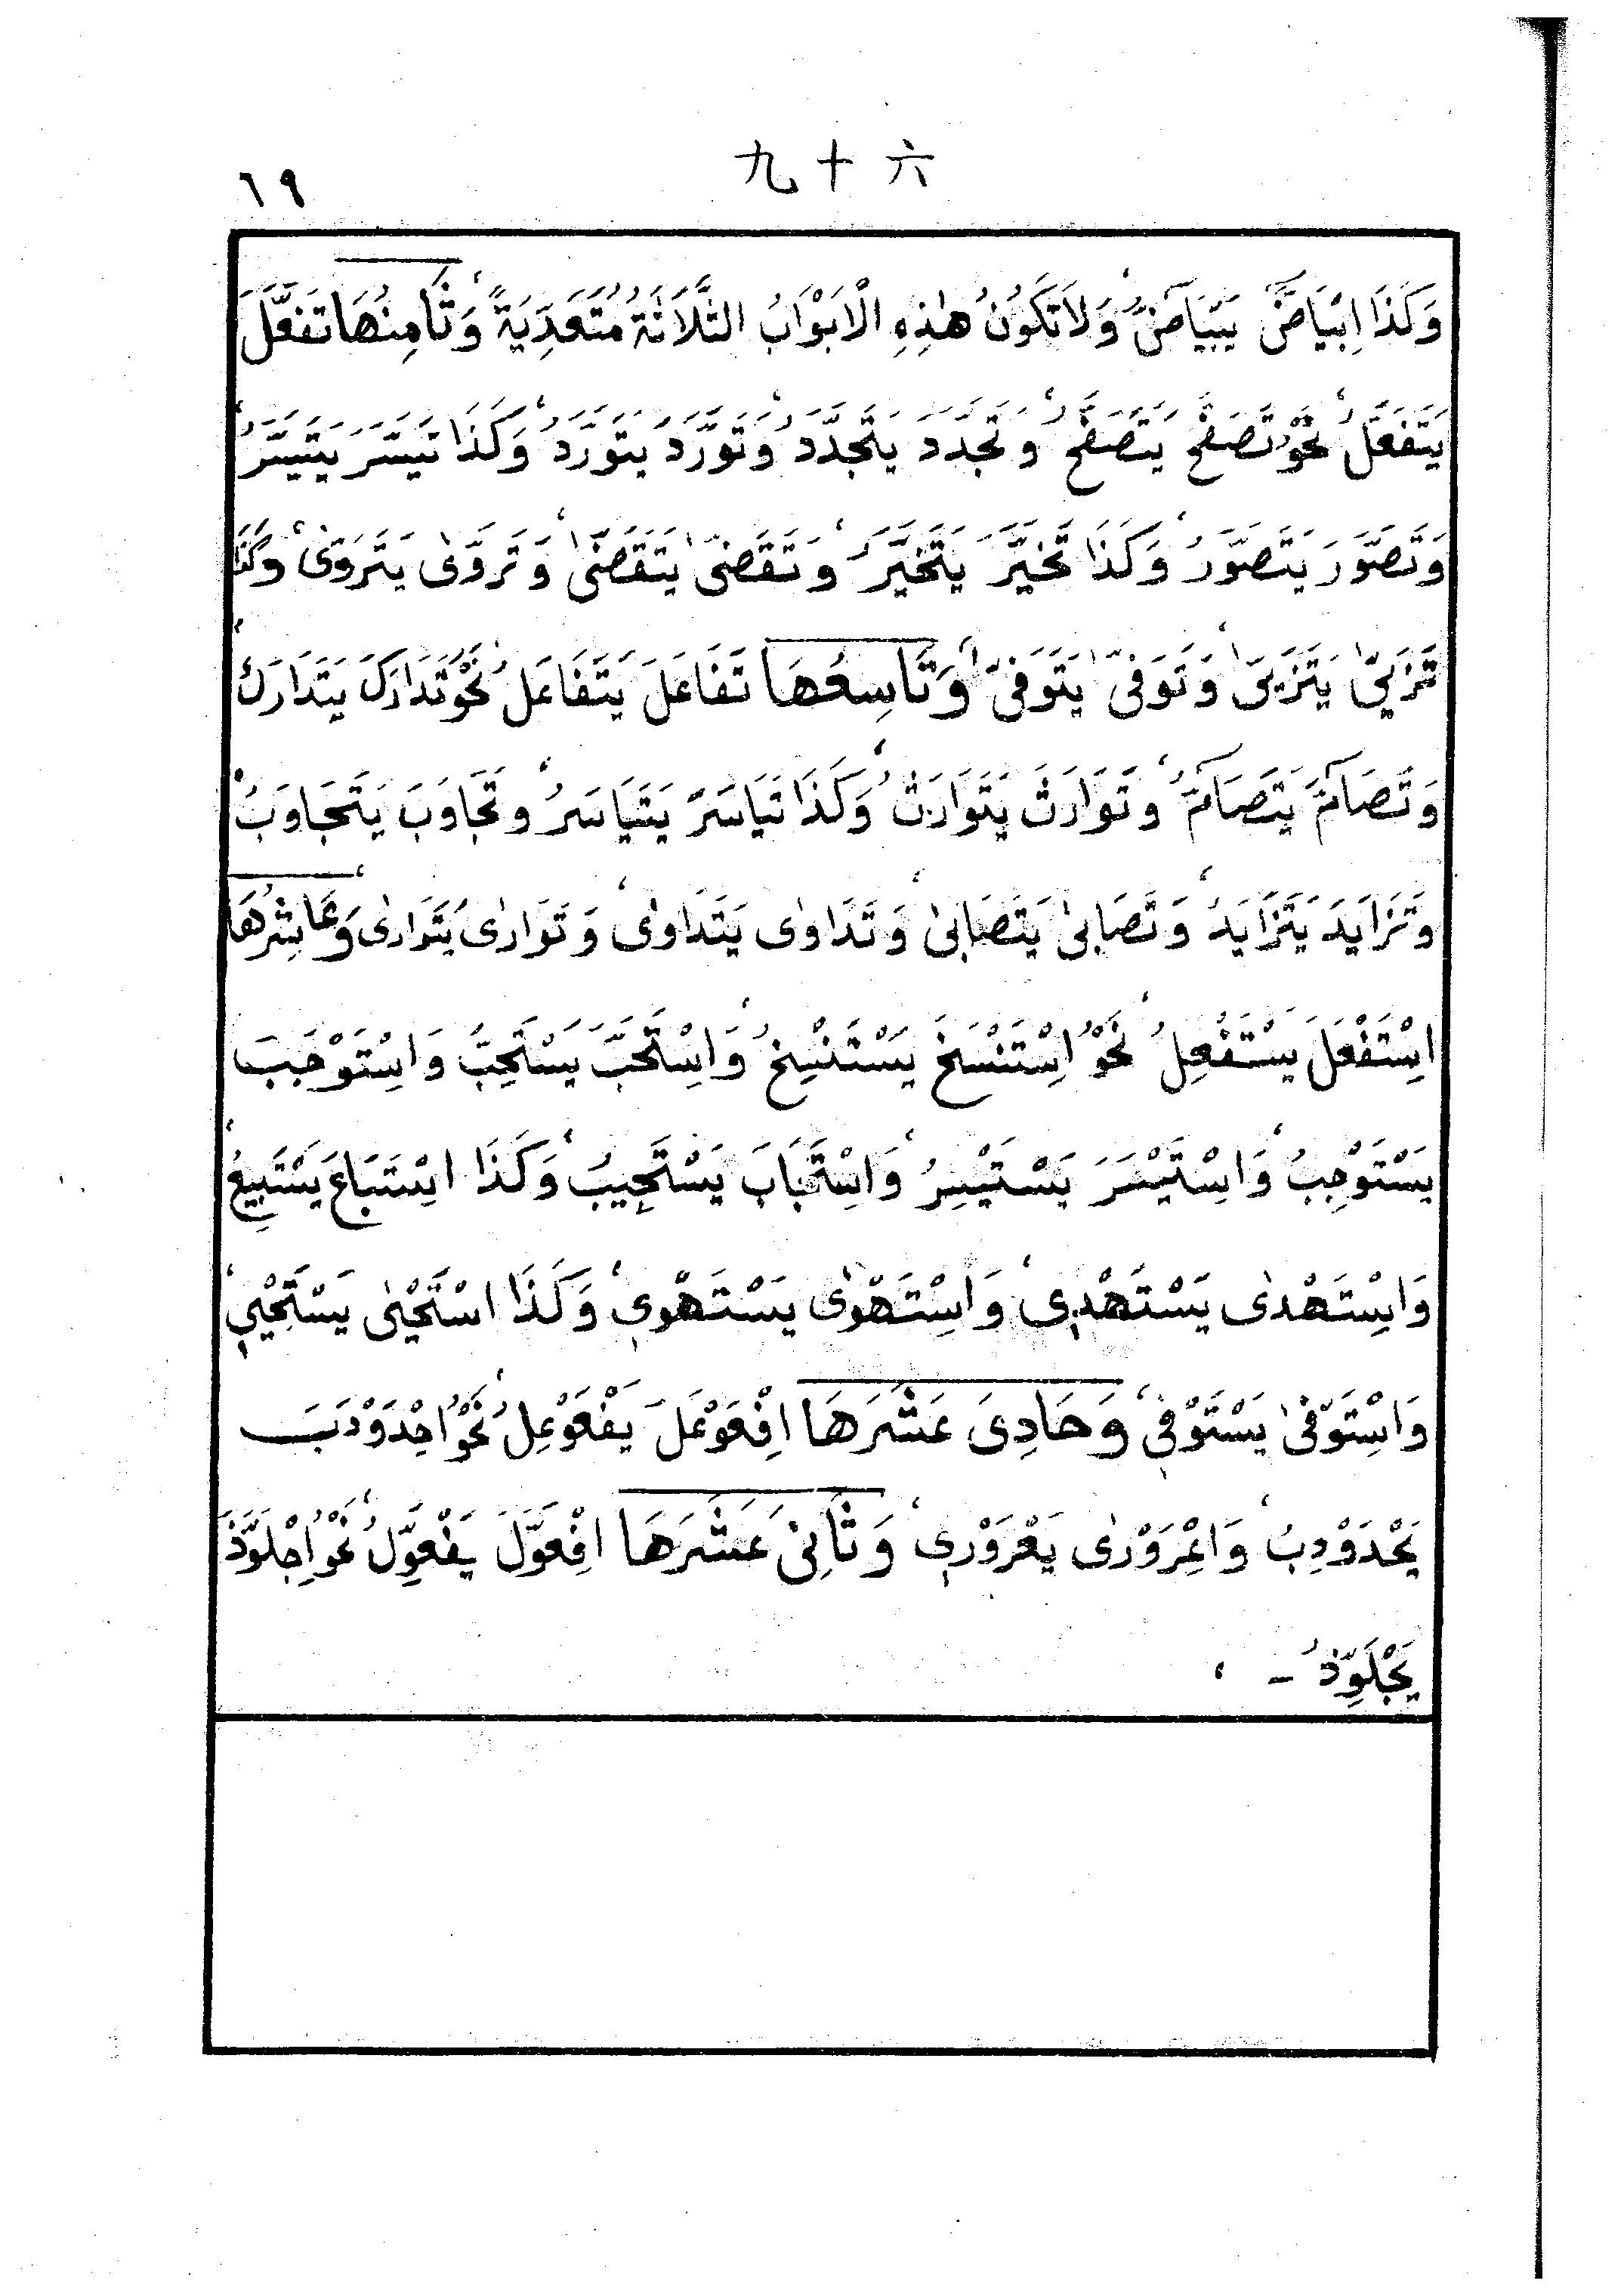 六十九
٦٩
وَكَذَا اِبْيَاضَّ يَبْيَاضُّ، وَلَا تَكُوْنُ هٰذِهِ الْاَبْوَابُ الثَّلَاثَةُ مُتَعَدِّيَةً، وَثَامِنُهَا تَفَعَّلَ
يَتَفَعَّلُ نَحْوُ تَصَفَّحَ يَتَصَفَّحُ، وَتَجَدَّدَ يَتَجَدَّدُ، وَتَوَرَّدَ يَتَوَرَّدُ، وَكَذَا تَيَسَّرَ يَتَيَسَّرُ،
وَتَصَوَّرَ يَتَصَوَّرُ، وَكَذَا تَخَيَّرَ يَتَخَيَّرُ، وَتَقَضّٰى يَتَقَضّٰى، وَتَرَوّٰى يَتَرَوّٰى، وَكَذَا
تَزَيّٰى يَتَزَيّٰى، وَتَوَفّٰى يَتَوَفّٰى، وَتَاسِعُهَا تَفَاعَلَ يَتَفَاعَلُ نَحْوُ تَدَارَكَ يَتَدَارَكُ،
وَتَصَآمَّ يَتَصَآمُّ، وَتَوَارَثَ يَتَوَارَثُ، وَكَذَا تَيَاسَرَ يَتَيَاسَرُ، وَتَجَاوَبَ يَتَجَاوَبُ،
وَتَزَايَدَ يَتَزَايَدُ، وَتَصَابٰى يَتَصَابٰى، وَتَدَاوٰى يَتَدَاوٰى، وَتَوَارٰى يَتَوَارٰى، وَعَاشِرُهَا
اِسْتَفْعَلَ يَسْتَفْعِلُ نَحْوُ اِسْتَنْسَخَ يَسْتَنْسِخُ، وَاِسْتَحَبَّ يَسْتَحِبُّ وَاِسْتَوْجَبَ
يَسْتَوْجِبُ، وَاِسْتَيْسَرَ يَسْتَيْسِرُ، وَاِسْتَجَابَ يَسْتَجِيبُ، وَكَذَا اِسْتَبَاعَ يَسْتَبِيعُ،
وَاِسْتَهْدٰى يَسْتَهْدِي، وَاِسْتَهْوٰى يَسْتَهْوِي، وَكَذَا اسْتَحْيٰى يَسْتَحْيِي،
وَاِسْتَوْفٰى يَسْتَوْفِي، وَحَادِىَ عَشَرَهَا اِفْعَوْعَلَ يَفْعَوْعِلُ، نَحْوُ اِحْدَوْدَبَ
يَحْدَوْدِبُ، وَاِعْرَوْرٰى يَعْرَوْرِي، وَثَانِىَ عَشَرَهَا اِفْعَوَّلَ يَفْعَوِّلُ، نَحْوُ اِجْلَوَّذَ
يَجْلَوِّذُ - ،